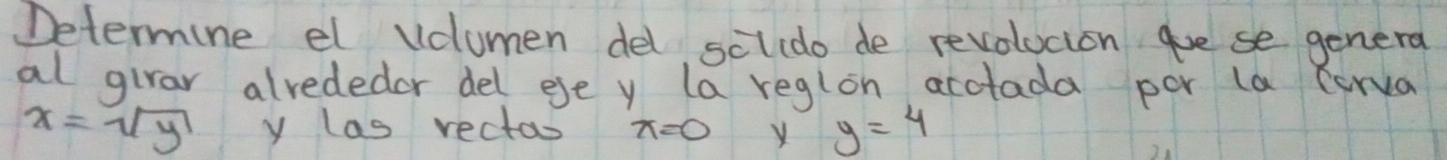 Determine el volumen del sólido de revolución que se genera
al girar alrededor del eje y la región acotada por la curva
x = √y y las rectas x=0 y y=4